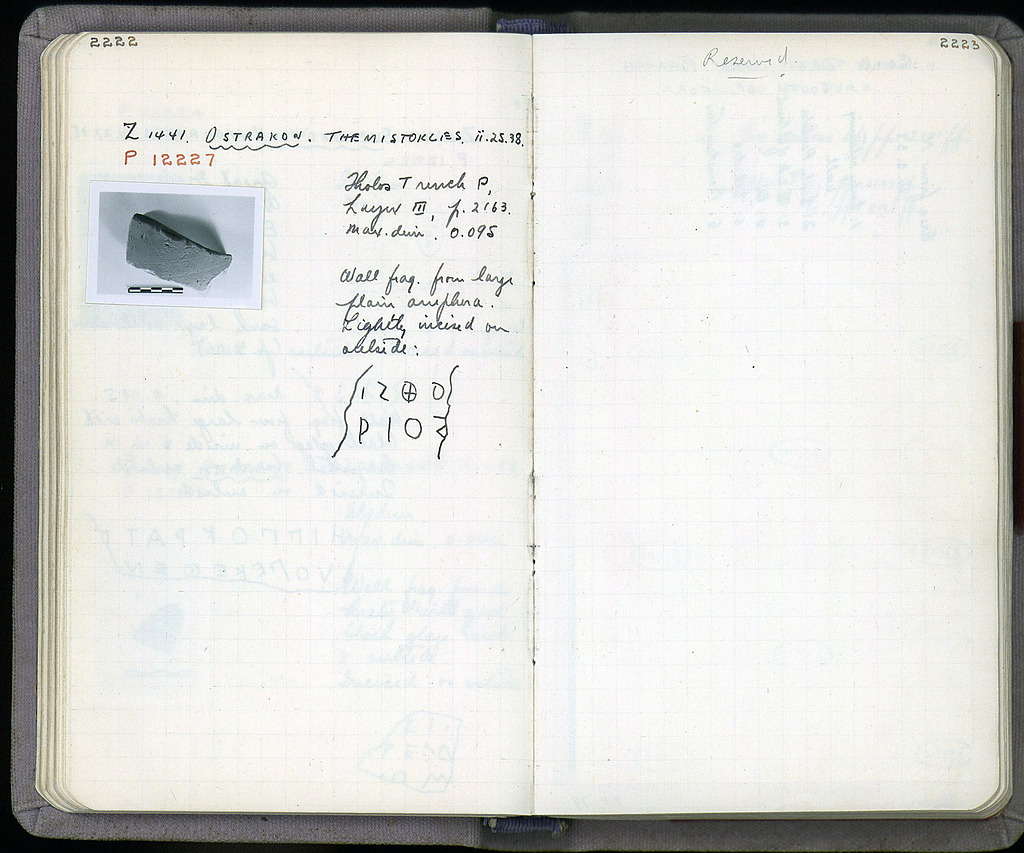 2222
Z 1441. OSTRAKON. THEMISTOKLES. ii.25.38.
P 12227
Tholos Trench P,
Layer III, p. 2163.
Max. dim. 0.095
Wall frag. from large
plain amphora.
Lightly incised on
outside:
Ι Σ ⊕ Ο
Ρ Ι Ο Σ
2223
Reserved.